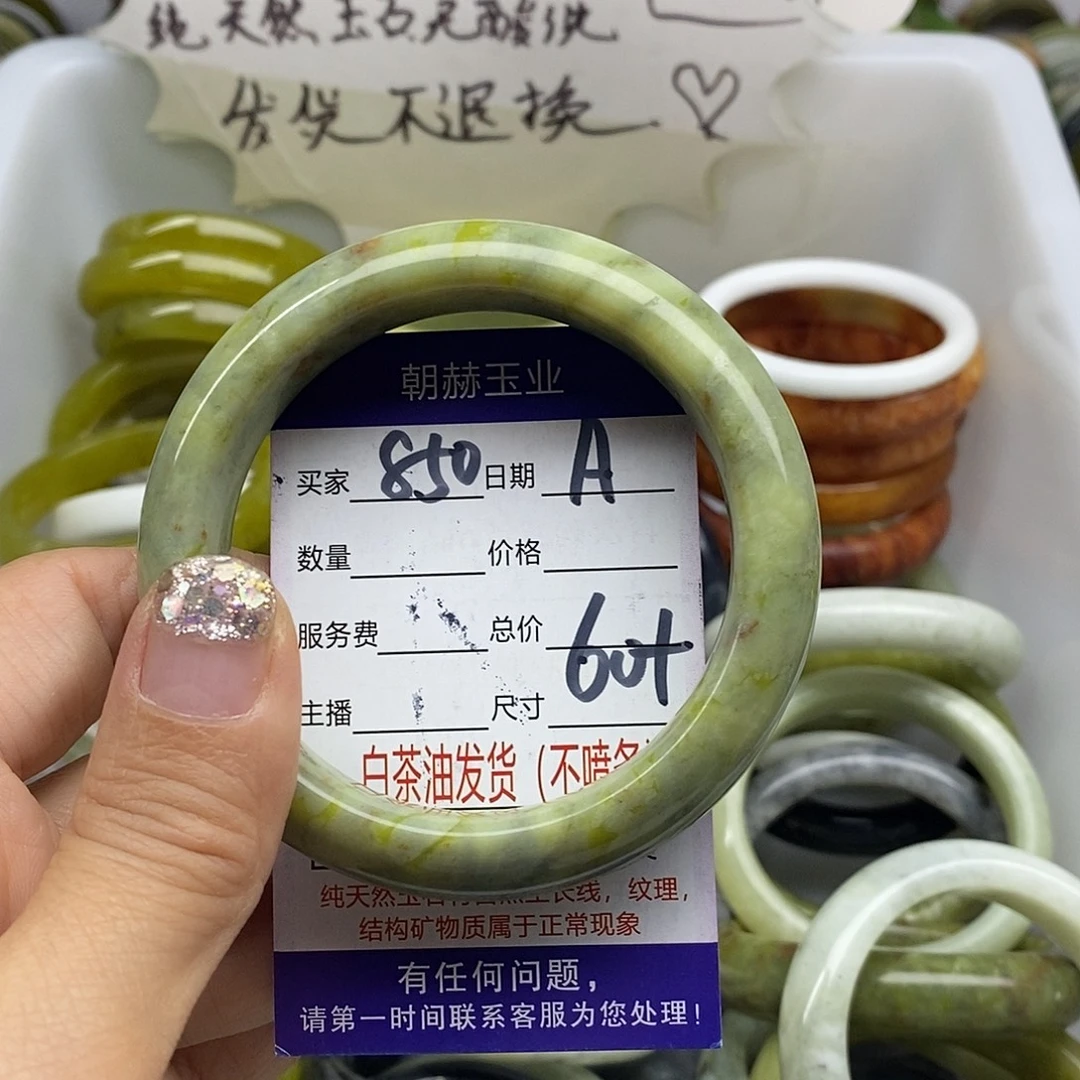 纯天然玉石无酸洗
发货不退换
朝赫玉业
买家 850 日期 A
数量 价格
服务费 总价
主播 尺寸 60+
白茶油发货（不喷
纯天然玉石 生长线，纹理，
结构矿物质属于正常现象
有任何问题，
请第一时间联系客服为您处理！